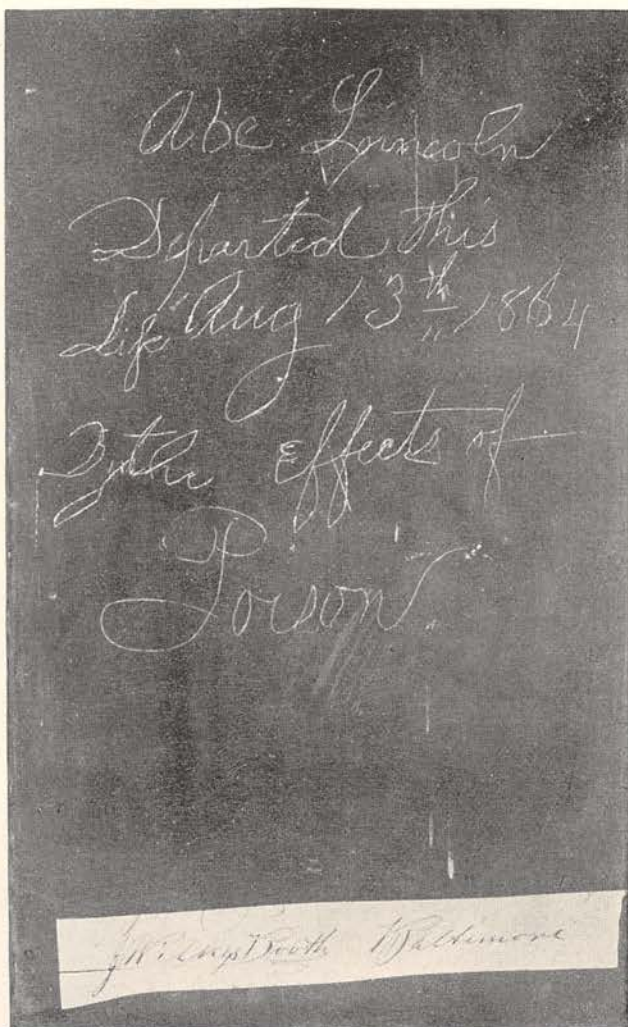 Abe Lincoln
Departed this
Life Aug 13th 1864
By the effects of
Poison.
J Wilkes Booth Baltimore